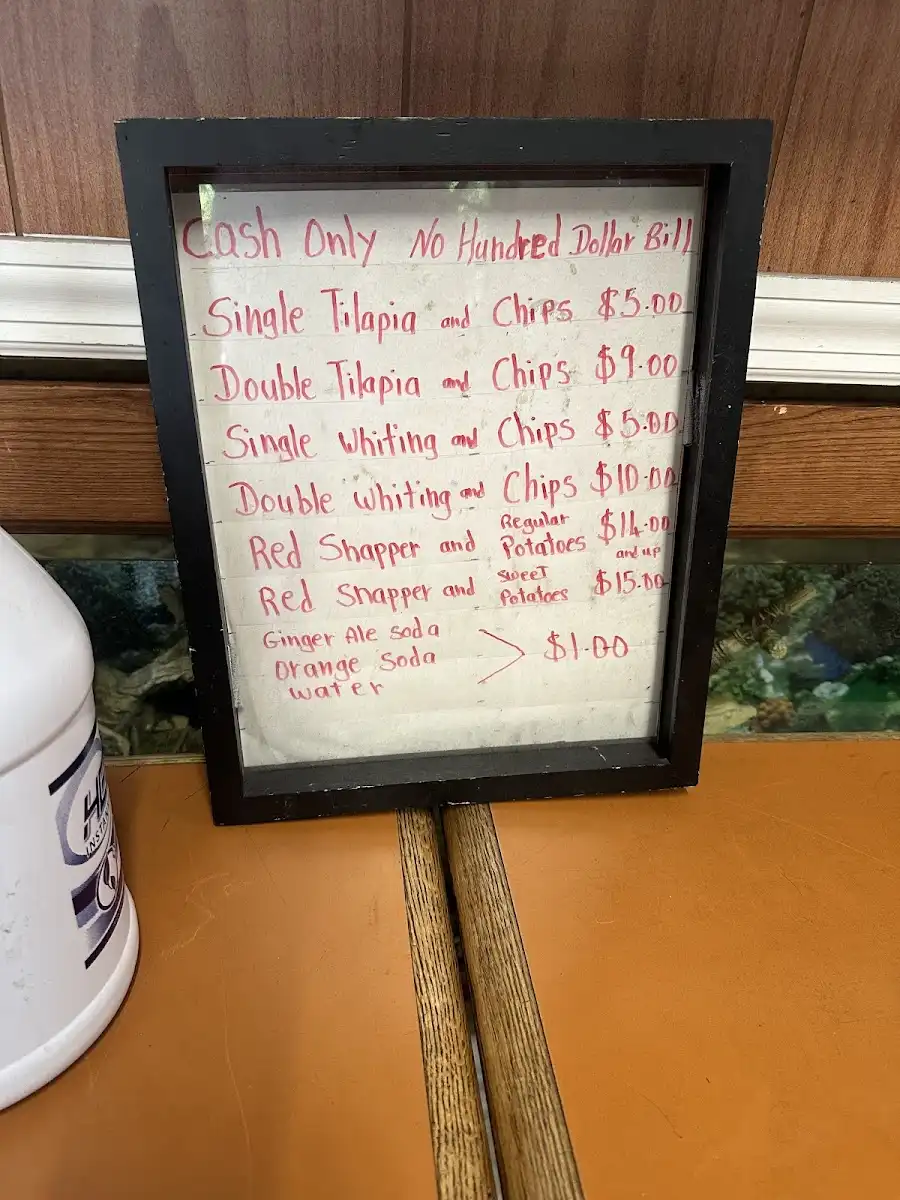 Cash Only No Hundred Dollar Bill
Single Tilapia and Chips $5.00
Double Tilapia and Chips $9.00
Single Whiting and Chips $5.00
Double Whiting and Chips $10.00
Red Snapper and Regular Potatoes $14.00 and up
Red Snapper and Sweet Potatoes $15.00
Ginger Ale Soda
Orange Soda
Water
$1.00